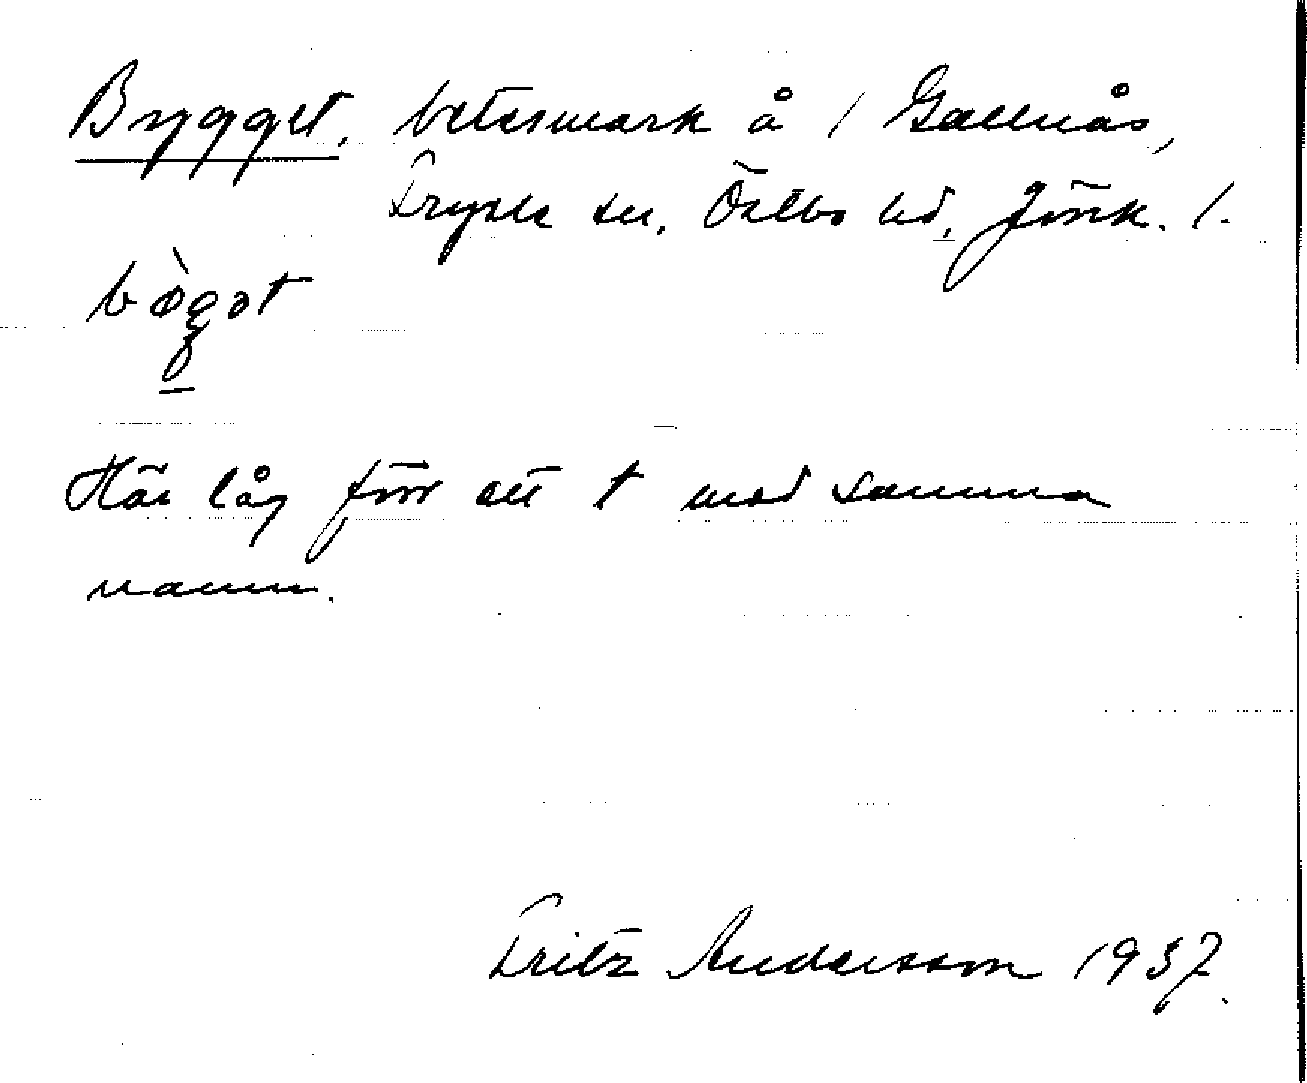 Brygget, betesmark å 1 Gällnås,
Fryele sn, Östbo hd, Jönk. l.
bøgət
Här låg förr ett t med samma
namn.
Fritz Andersson 1937.